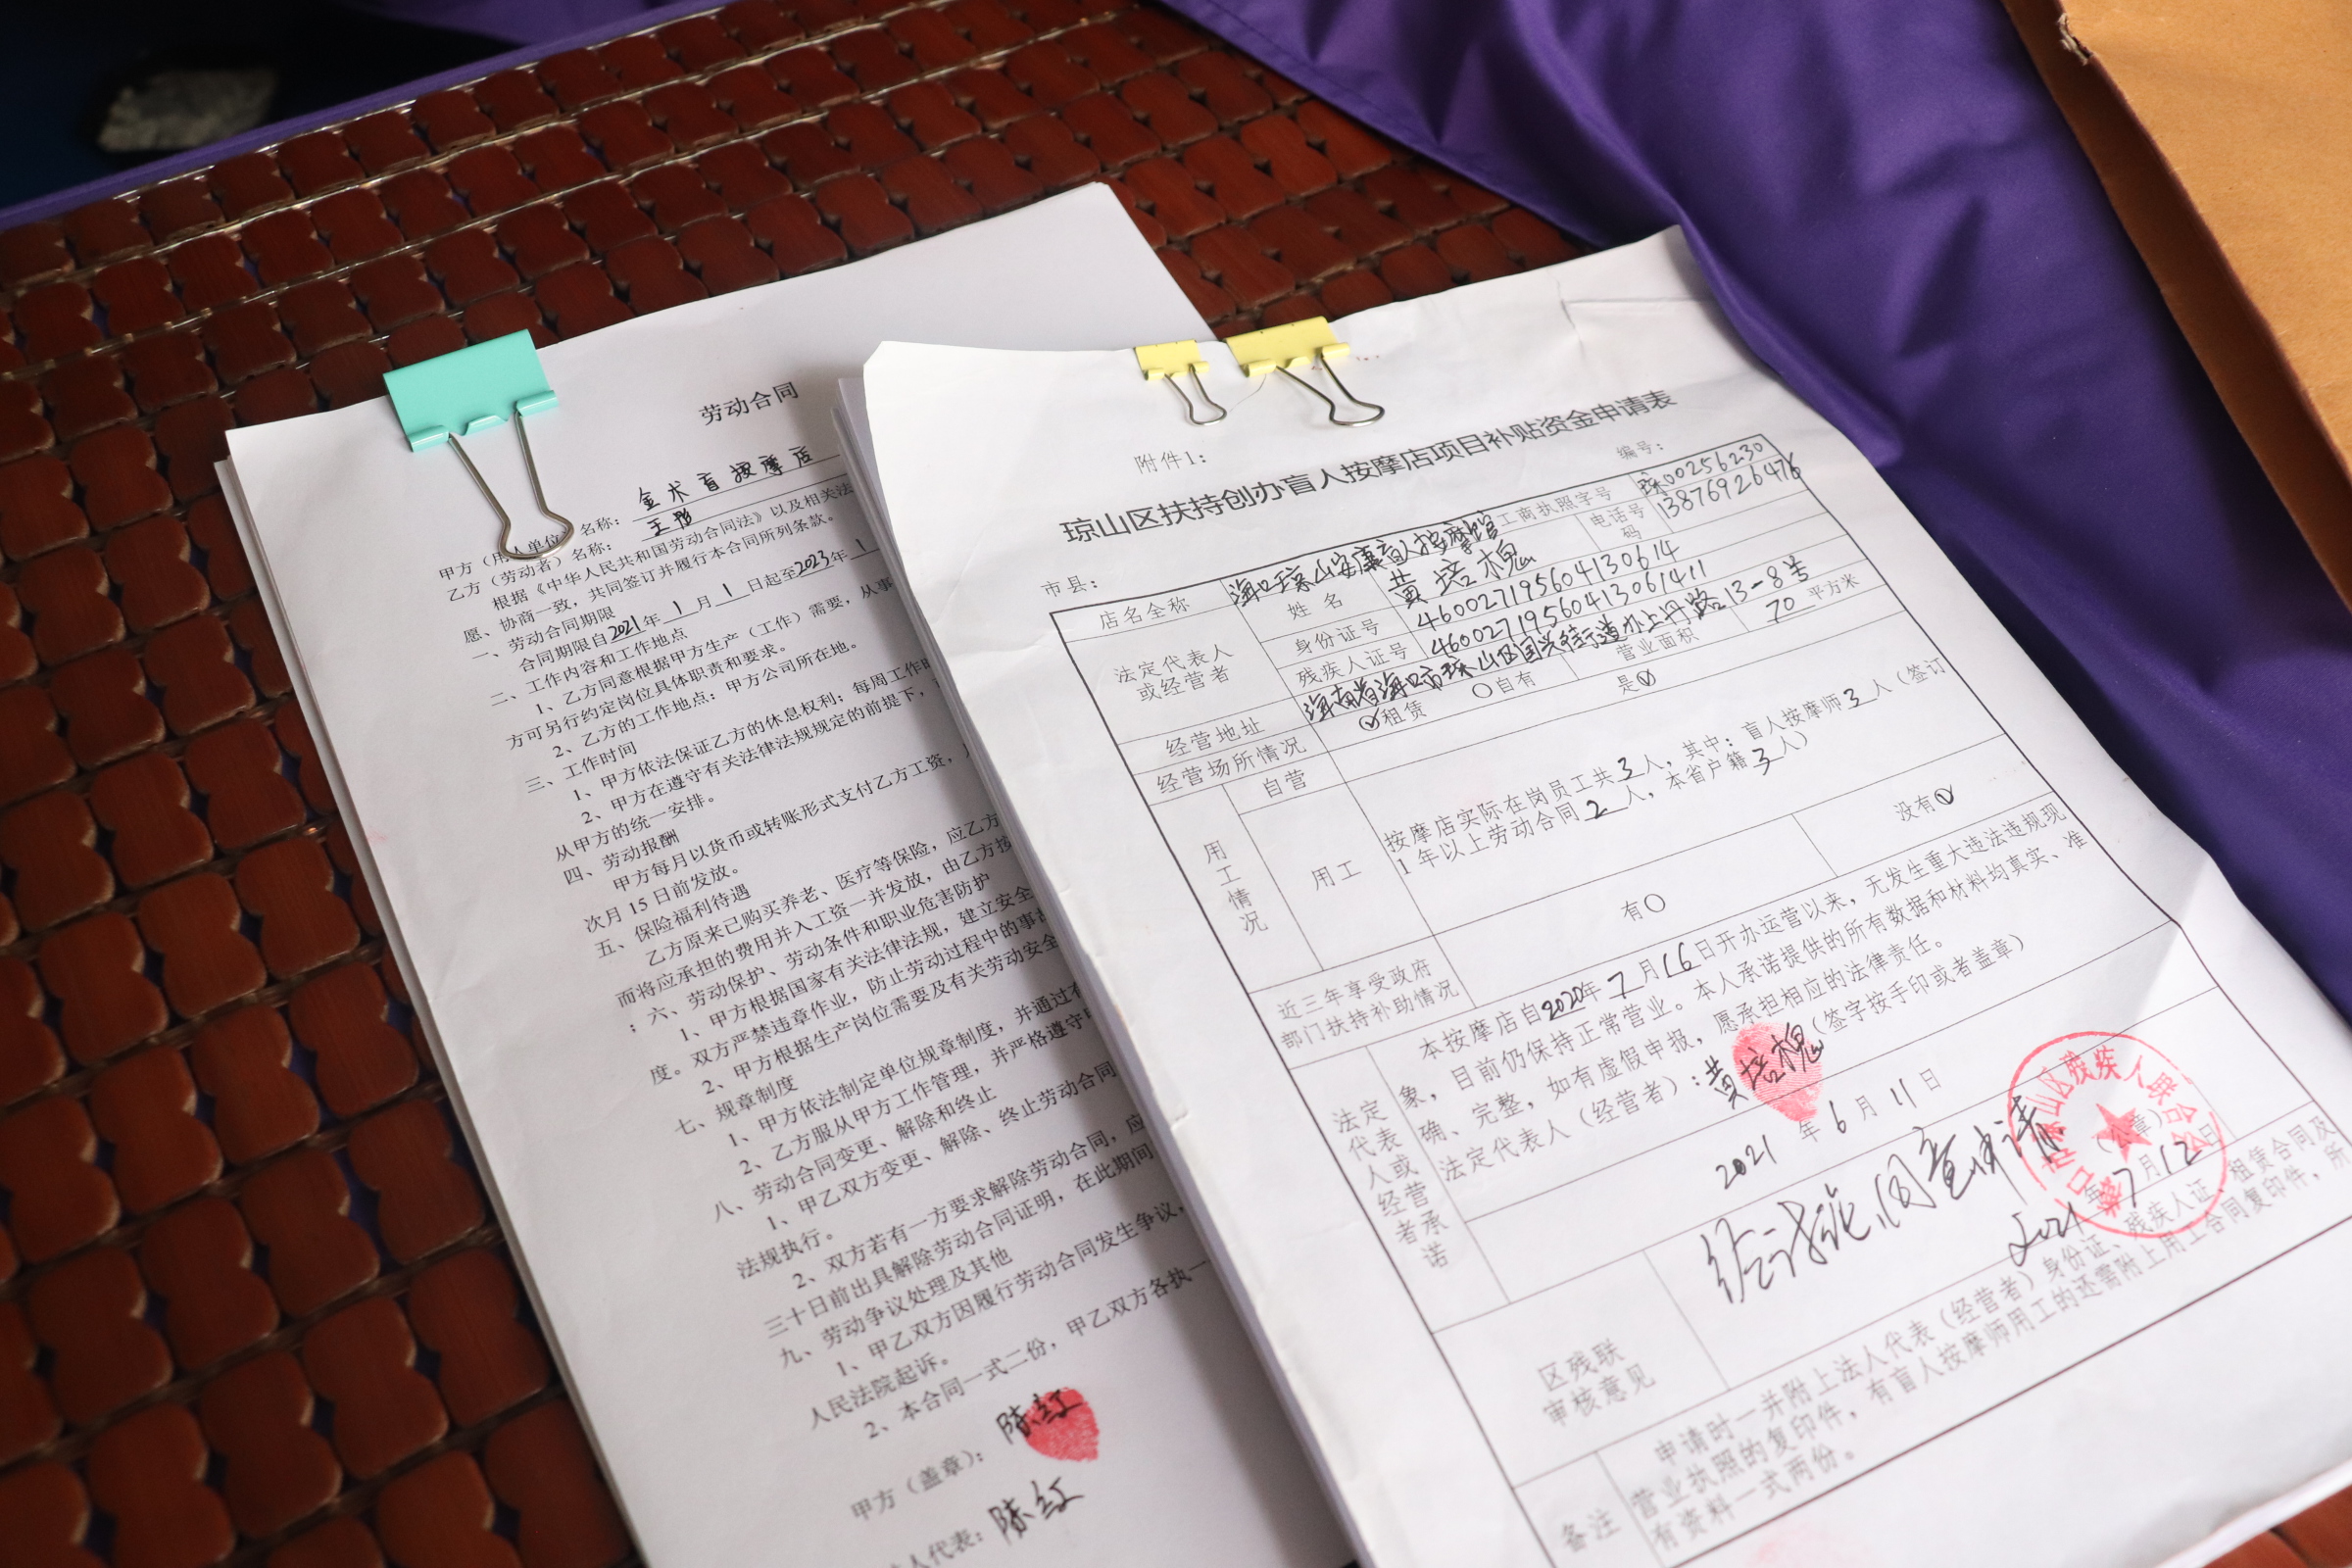 劳动合同
甲方（用人单位）名称：金术盲按摩店
乙方（劳动者）名称：王彤
根据《中华人民共和国劳动合同法》以及相关法
愿、协商一致，共同签订并履行本合同所列条款。
一、劳动合同期限
合同期限自2021年1月1日起至2023年1
二、工作内容和工作地点
1、乙方同意根据甲方生产（工作）需要，从事
方可另行约定岗位具体职责和要求。
2、乙方的工作地点：甲方公司所在地。
三、工作时间
1、甲方依法保证乙方的休息权利；每周工作时
2、甲方在遵守有关法律法规规定的前提下，
从甲方的统一安排。
四、劳动报酬
甲方每月以货币或转账形式支付乙方工资，
次月15日前发放。
五、保险福利待遇
乙方原来已购买养老、医疗等保险，应乙方
而将应承担的费用并入工资一并发放，由乙方按
：六、劳动保护、劳动条件和职业危害防护
1、甲方根据国家有关法律法规，建立安全
度。双方严禁违章作业，防止劳动过程中的事故
2、甲方根据生产岗位需要及有关劳动安全
七、规章制度
1、甲方依法制定单位规章制度，并通过有
2、乙方服从甲方工作管理，并严格遵守甲
八、劳动合同变更、解除和终止
1、甲乙双方变更、解除、终止劳动合同
法规执行。
2、双方若有一方要求解除劳动合同，应
三十日前出具解除劳动合同证明，在此期间
九、劳动争议处理及其他
1、甲乙双方因履行劳动合同发生争议，
人民法院起诉。
2、本合同一式二份，甲乙双方各执一
甲方（盖章）：陈红
人代表：陈红
附件1：
琼山区扶持创办盲人按摩店项目补贴资金申请表
市县： 编号：
店名全称 海口琼山安康盲人按摩馆 工商执照字号 琼00256230
法定代表人或经营者 姓名 黄培槐 电话号码 13876926476
身份证号 460027195604130614
残疾人证号 46002719560413061411
经营地址 海南省海口市琼山区国兴街道办上丹路13-8号
经营场所情况 租赁 自有 营业面积 70 平方米
用工情况 自营 是
用工 按摩店实际在岗员工共3人，其中：盲人按摩师3人（签订
1年以上劳动合同2人，本省户籍3人）
近三年享受政府部门扶持补助情况 有 没有
法定代表人或经营者承诺
本按摩店自2020年7月16日开办运营以来，无发生重大违法违规现
象，目前仍保持正常营业。本人承诺提供的所有数据和材料均真实、准
确、完整，如有虚假申报，愿承担相应的法律责任。
法定代表人（经营者）：黄培槐（签字按手印或者盖章）
2021年6月11日
区残联审核意见
海口市琼山区残疾人联合会
（公章）
2021年7月12日
备注
申请时一并附上法人代表（经营者）身份证、残疾人证、租赁合同及
营业执照的复印件，有盲人按摩师用工的还需附上用工合同复印件，所
有资料一式两份。